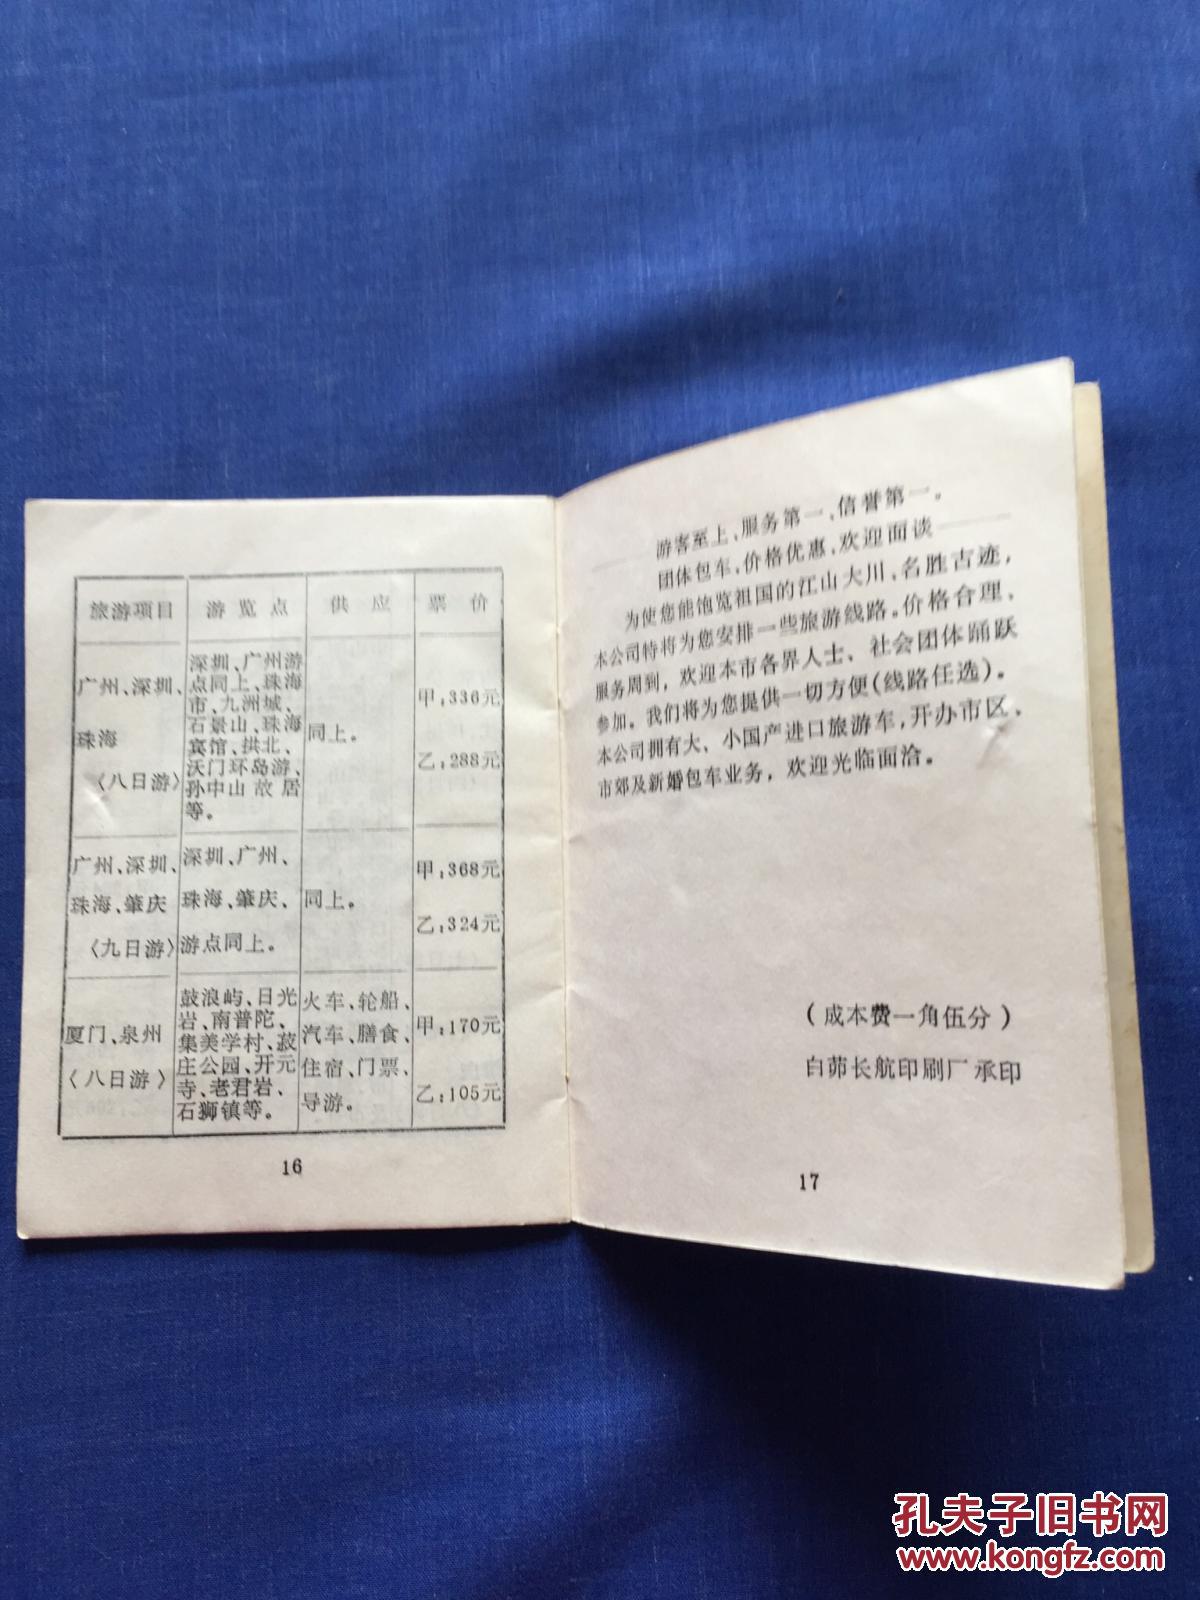 旅游项目 游览点 供应 票价
广州、深圳、
珠海
〈八日游〉
深圳、广州游
点同上、珠海
市、九洲城、
石景山、珠海
宾馆、拱北、
沃门环岛游、
孙中山故居
等。
同上。
甲:336元
乙:288元
广州、深圳、
珠海、肇庆
〈九日游〉
深圳、广州、
珠海、肇庆、
游点同上。
同上。
甲:368元
乙:324元
厦门、泉州
〈八日游〉
鼓浪屿、日光
岩、南普陀、
集美学村、菽
庄公园、开元
寺、老君岩、
石狮镇等。
火车、轮船、
汽车、膳食、
住宿、门票、
导游。
甲:170元
乙:105元
16
游客至上、服务第一、信誉第一。
团体包车、价格优惠、欢迎面谈
为使您能饱览祖国的江山大川、名胜古迹，
本公司特将为您安排一些旅游线路。价格合理、
服务周到，欢迎本市各界人士、社会团体踊跃
参加。我们将为您提供一切方便(线路任选)。
本公司拥有大、小国产进口旅游车，开办市区、
市郊及新婚包车业务，欢迎光临面洽。
(成本费一角伍分)
白茆长航印刷厂承印
17
孔夫子旧书网
www.kongfz.com